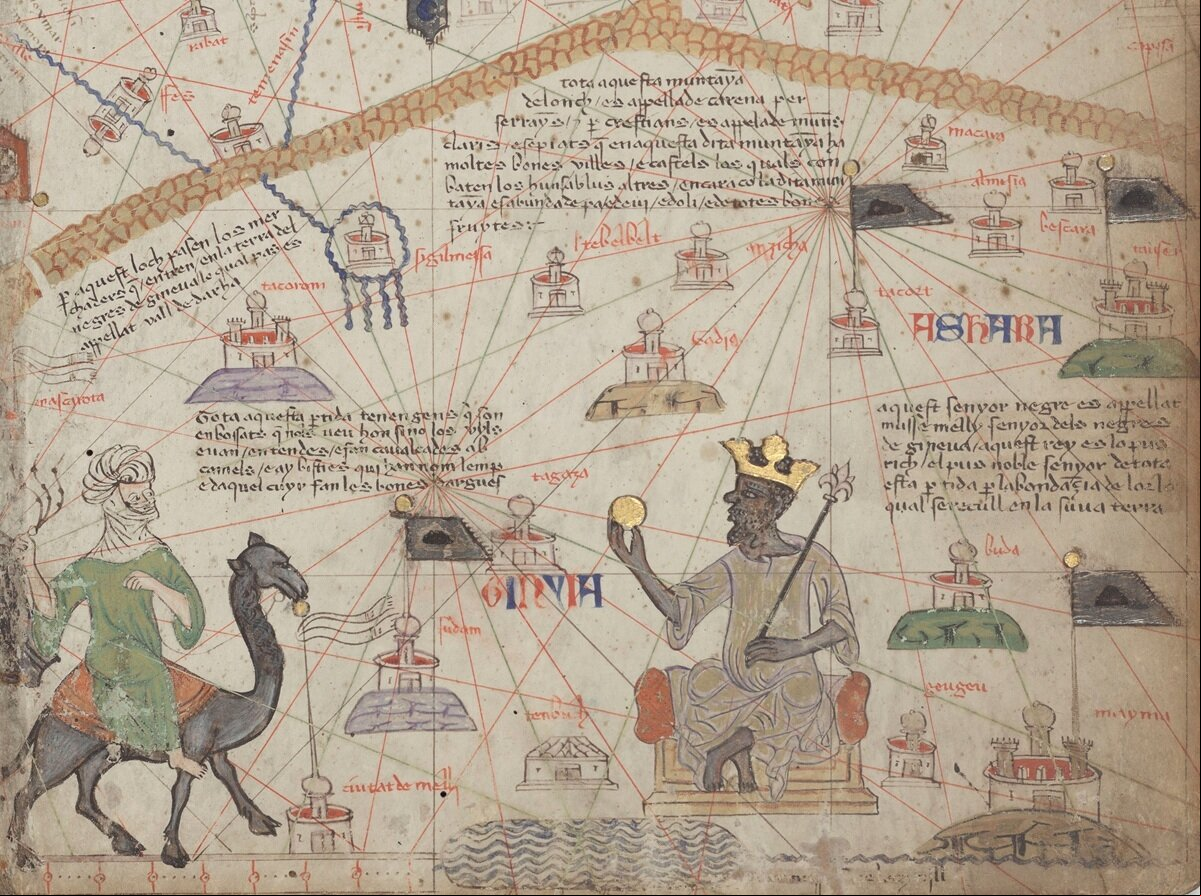 ribat
ffes
tota aquesta muntaya
de lonch / es appellade carena per
serrayns / e per crestians / es appelade muntis
claris / e sepiats que en aquesta dita muntaya ha
moltes bones villes / e castels los quals con
baten los huns ab lus altres / encara co la dita mun
taya es abundade pa e de vi / e doli / e de totes bones
fruytes :-
macara
almsia
bescara
per aquest loch pasen los mer
chaders que entren en la terra del
negres de gineua lo qual pas es
appellat vall de darha
sigilmessa
tebelbelt
tacorom
tacort
ASHARA
Tota aquesta partida tenen gens que son
enboçats que nols veu hom sino los uyls
e van / en tendes / e fan caualcades ab
camels / e ay bisties qui han nom lemp
e daquel cuyr fan les bones dargues
aquest senyor negre es appellat
musse melly senyor dels negres
de gineua / aquest rey es lo pus
rich / el pus noble senyor de tota
esta partida per labondaçia de lor lo
qual se recull en la suua terra
tagaza
buda
GINYIA
sudam
tenbuch
geugeu
mayma
ciutat de melli